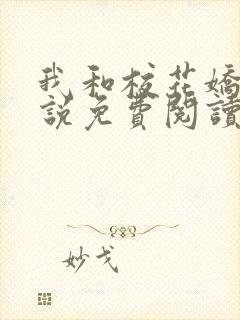 我和校花嬌
說免費閱讀
妙戈